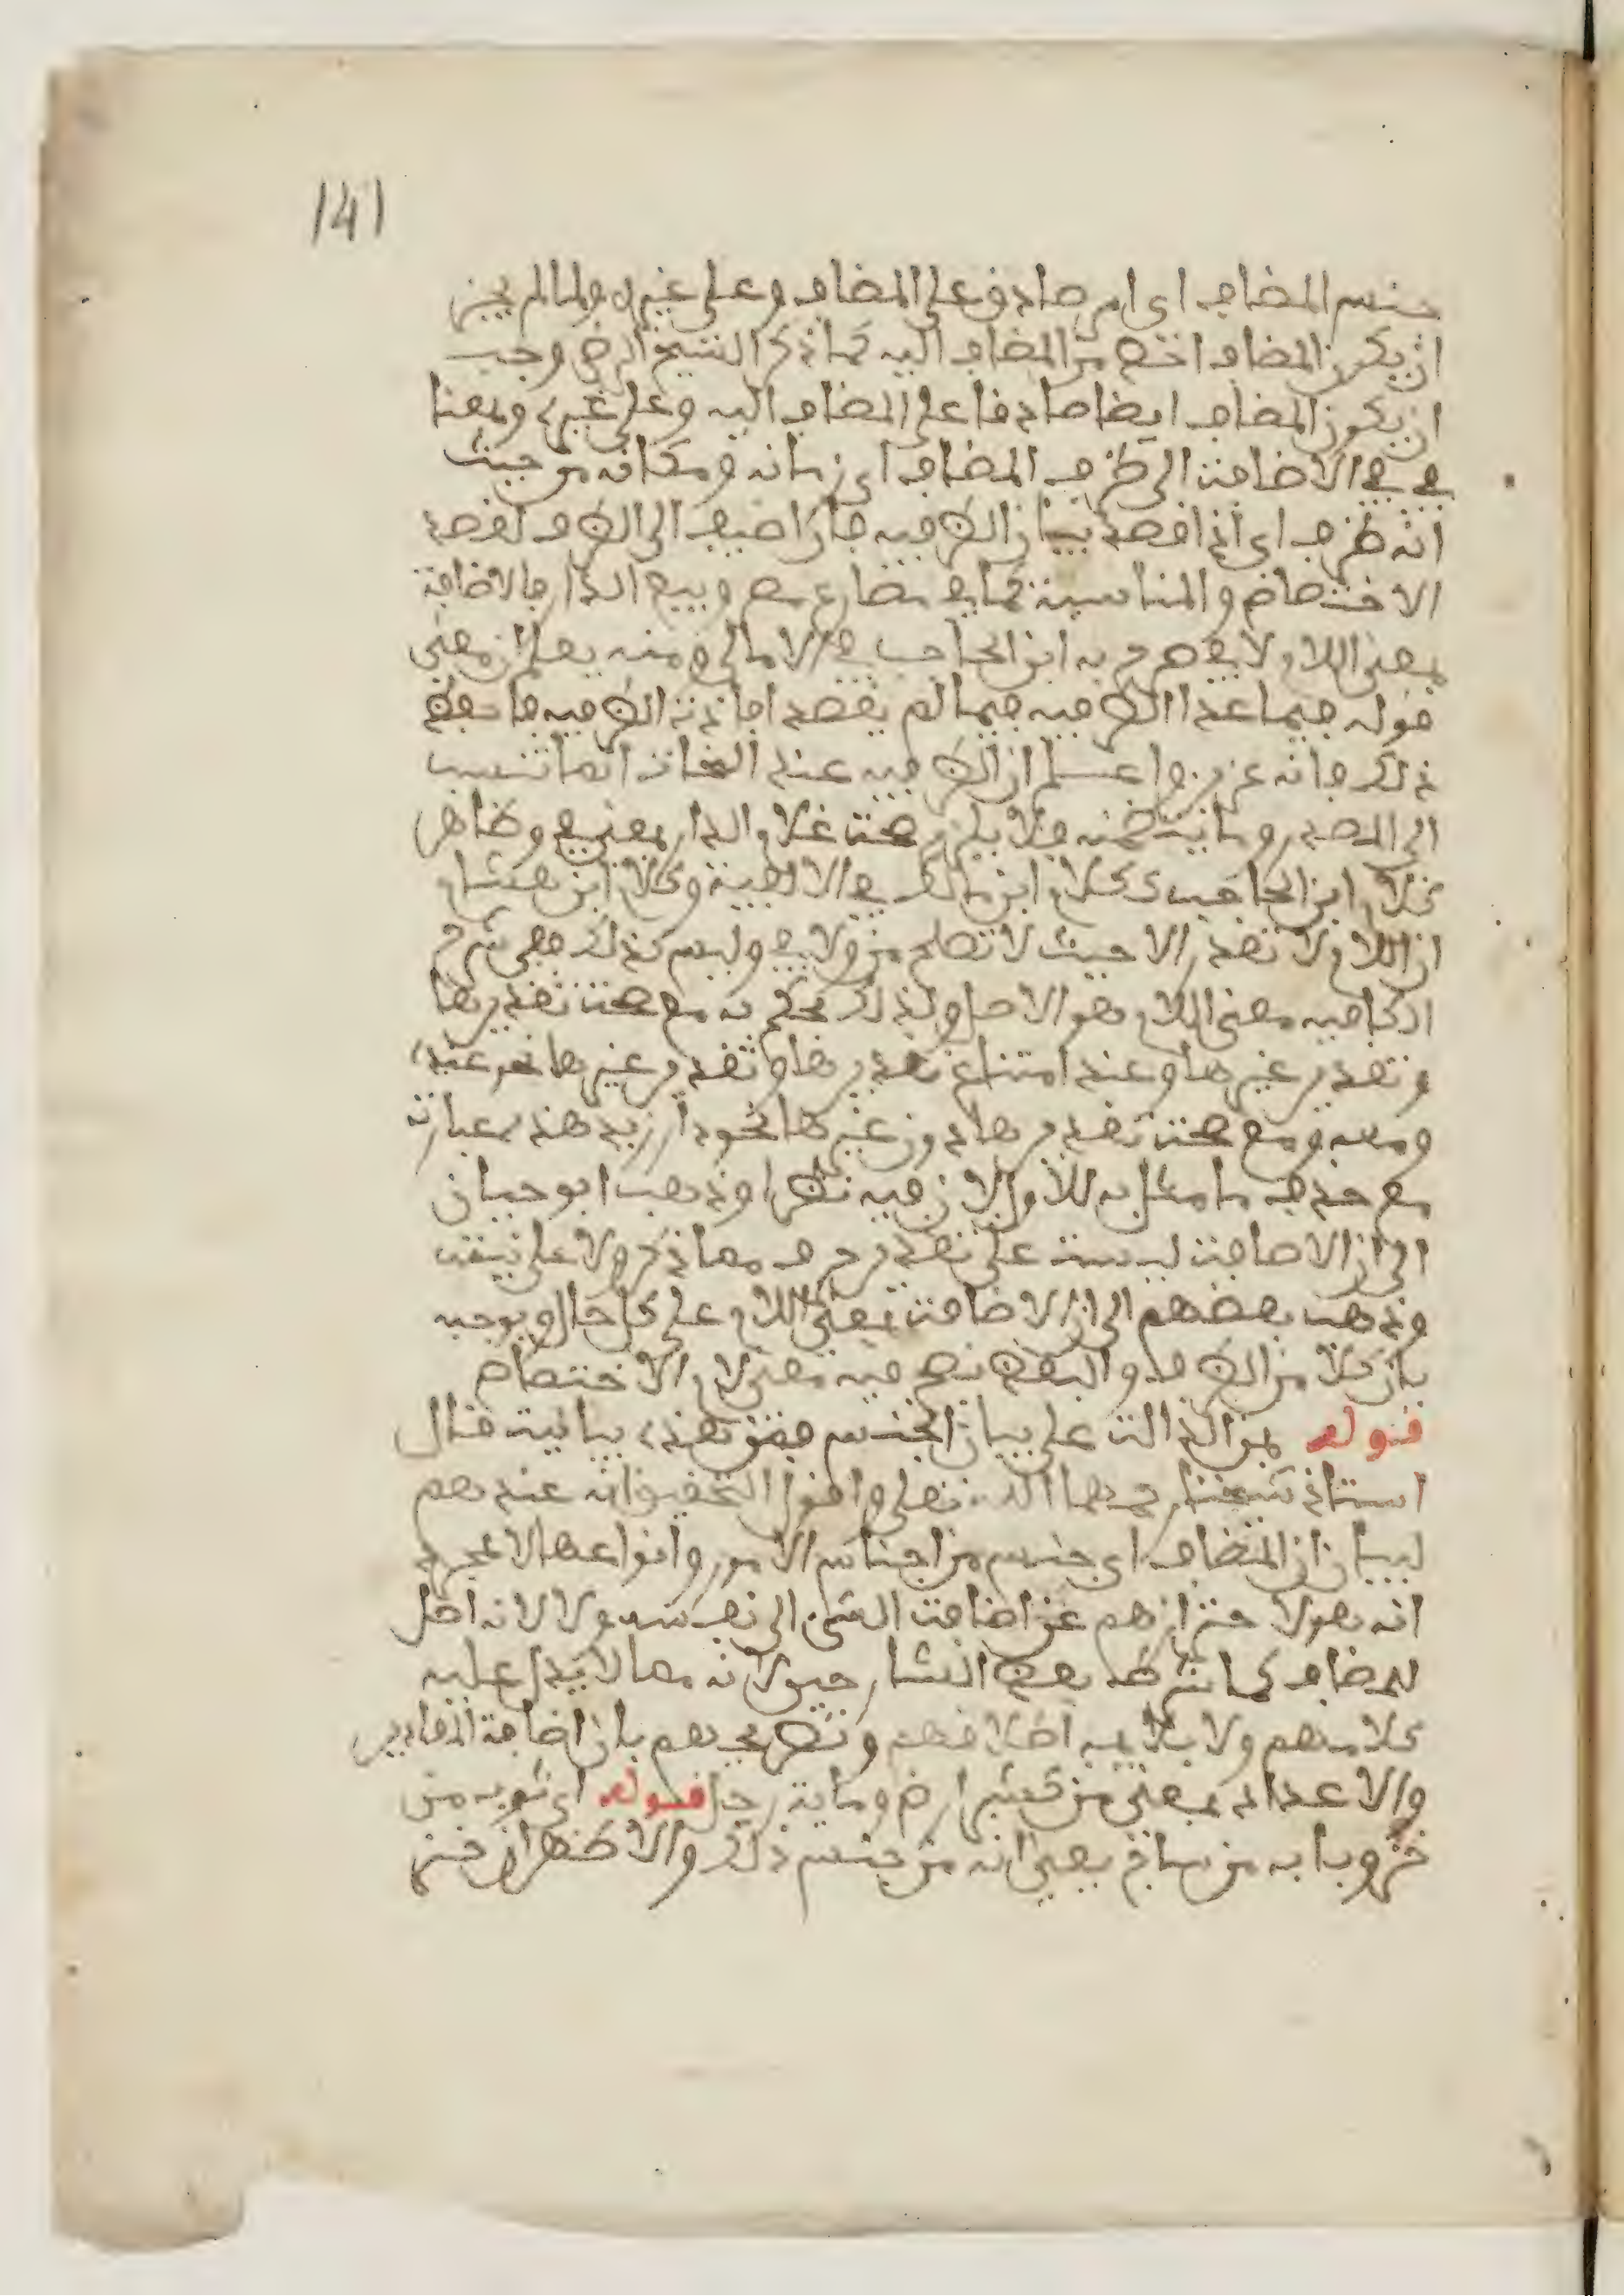 141
جنس المضاف اي امر صادق على المضاف وعلى غيره ولما لم يجز
ان يكون المضاف اخص من المضاف اليه كما ذكر الشيخ الرضي وجب
ان يكون المضاف ايضا صادقا على المضاف اليه وعلى غيره ومعنا
في في الاضافة الى ظرف المضاف اي زمانه ومكانه من حيث
انه ظرف اي اذا قصد بيان الظرفية فان اضيف الى الظرف لقصد
الاختصاص والمناسبة كما في مضارع مصر وبيع الدار فالاضافة
بمعنى اللام لا في صرح به ابن الحاجب في الامالي ومنه يعلم ان معنى
قوله فيما عدا الظرفية فيما لم يقصد افادة الظرفية فاحفظ
ذلك فانه عزيز واعلم ان الظرفية عند النحاة انما تنسب
الى المصدر وما يتضمنه فلا يلزم صحة غلام الدار بمعنى في وظاهر
كلام ابن الحاجب ككلام ابن مالك في الالفية وكلام ابن هشام
ان اللام لا تقدر الا حيث لا تصلح من ولا في وليس كذلك ففي شرح
الكافية معنى اللام هو الاصل ولذلك يحكم به مع صحة تقديرها
وتقدير غيرها وعند امتناع تقديرها وتقدير غيرها نحو عنده
ومعه ومع صحة تقديرها دون غيرها نحو دار زيد هذه عبارته
مع حذف ما مثل به للاول لان فيه نظرا وذهب ابو حيان
الى ان الاضافة ليست على تقدير حرف مما ذكر ولا على نيته
وذهب بعضهم الى ان الاضافة بمعنى اللام على كل حال ويوجه
بان كلا من الظرف والبعض يصح فيه معنى لام الاختصاص
قوله بمن الدالة على بيان الجنس فمن هذه بيانية قال
استاذ شيخنا رحمهما الله تعلى واقول التحقيق انه عندهم
لبيان ان المضاف اي جنس من اجناس الامور وانواعها لا لمجرد
انه هو لاحترازهم عن اضافة الشيء الى نفسه ولا لانه اصل
للمضاف كما شرطه بعض الشارحين لانه مما لا يدل عليه
كلامهم ولا يلايمه اطلاقهم وتصريحهم بان اضافة المقادير
والاعداد بمعنى من كشبر ارض ومائة رجل قوله اي ثوب من
خز وباب من ساج يعني انه من جنس ذلك والاظهر ان خز